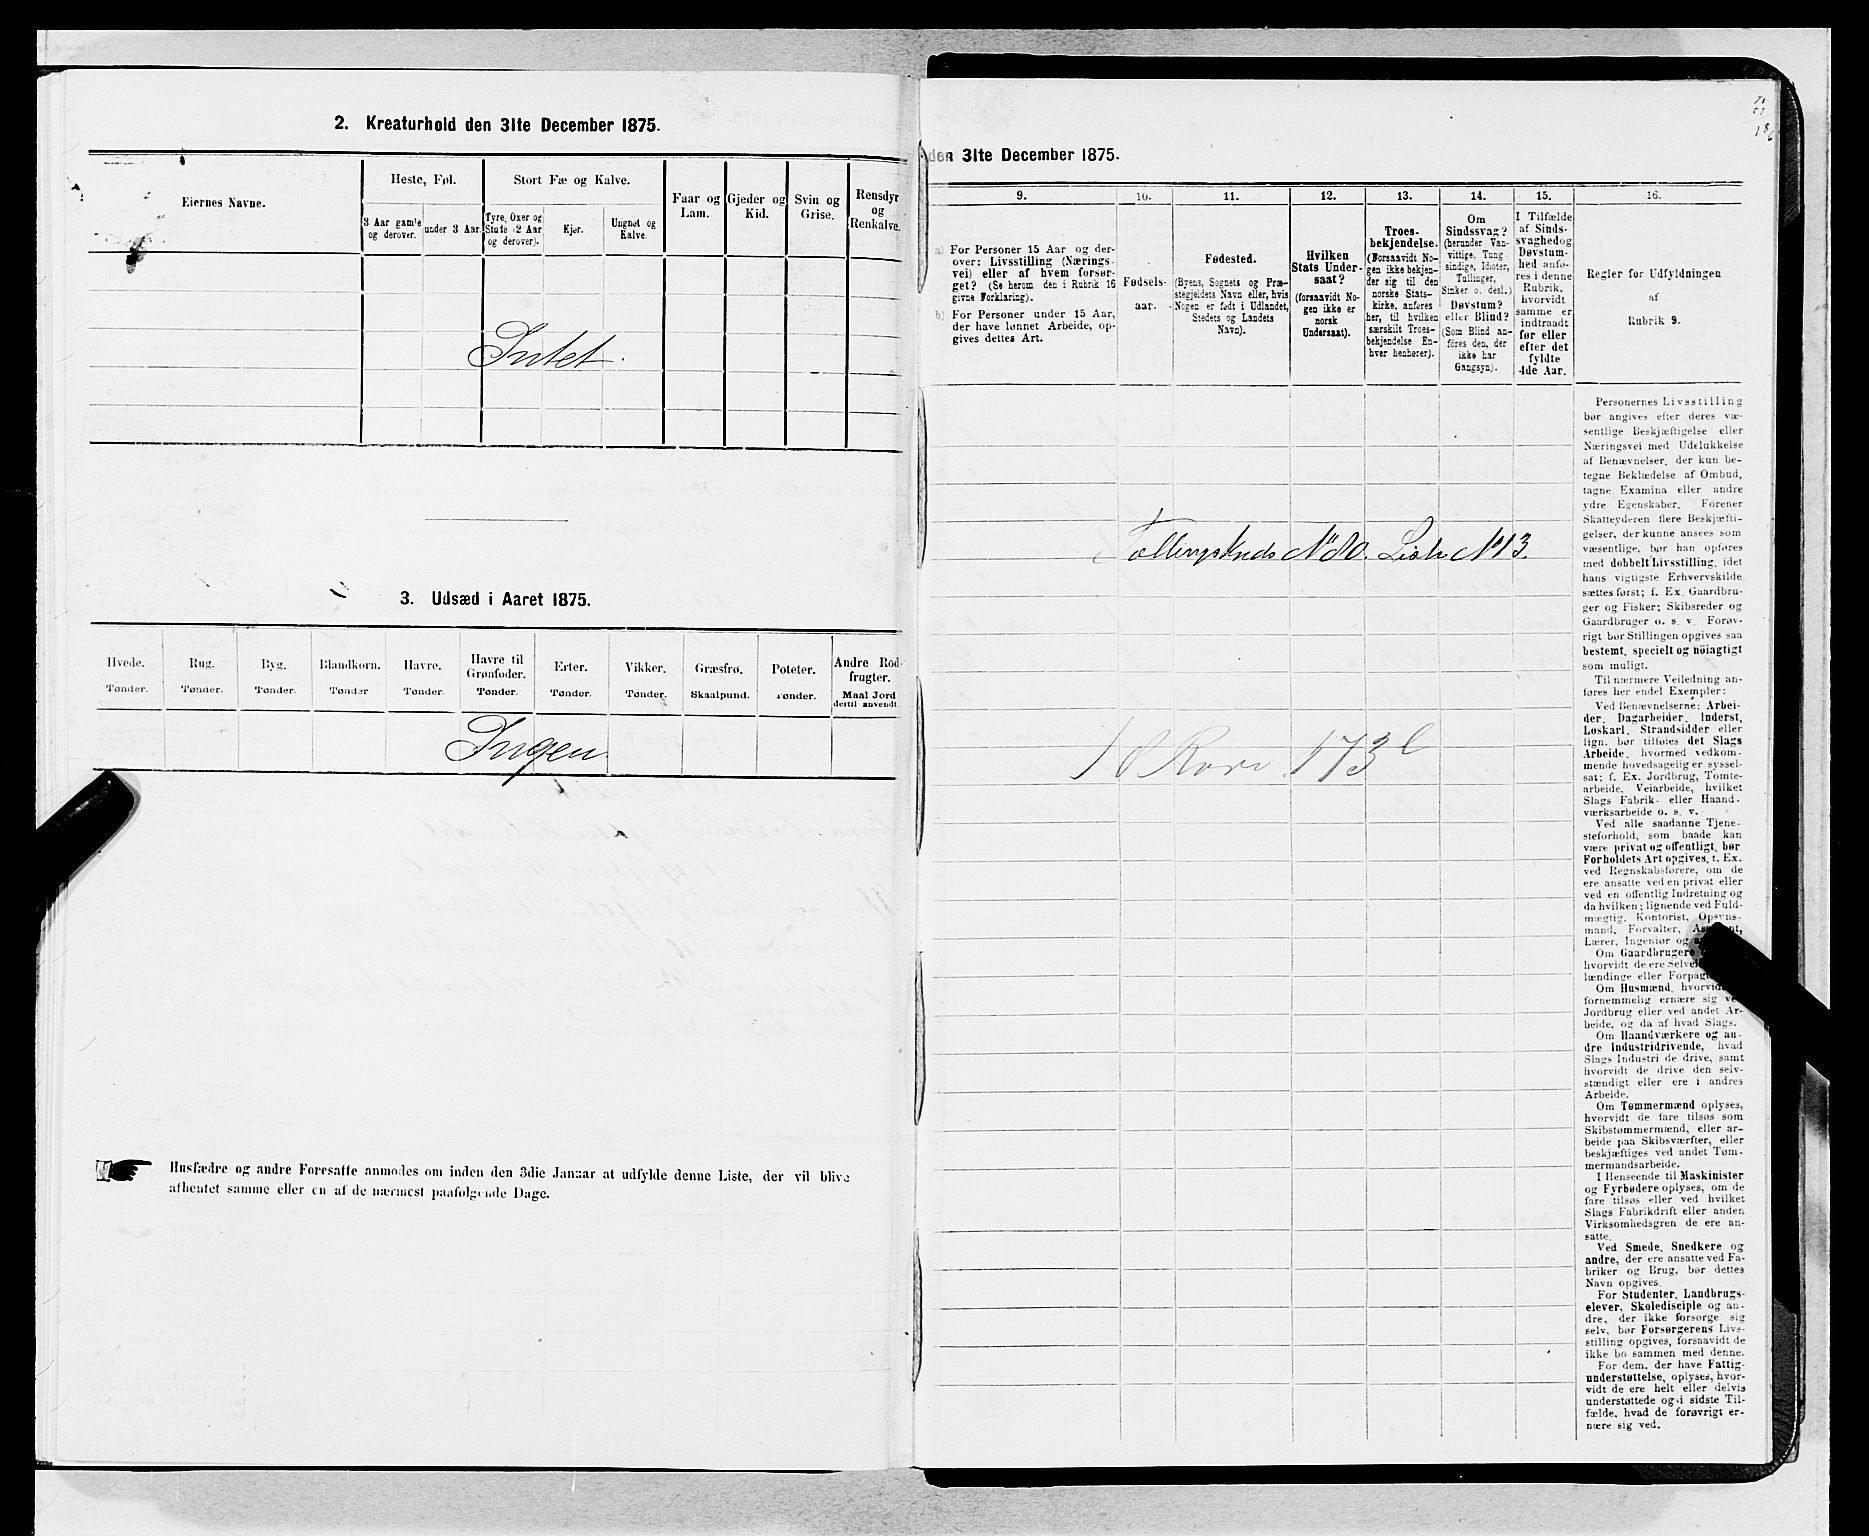 2. Kreaturhold den 31te December 1875.
Eiernes Navne.
Heste, Føl.
3 Aar gamle og derover.
under 3 Aar.
Stort Fæ og Kalve.
Tyre, Oxer og Stute (2 Aar og derover).
Kjør.
Ungnøt og Kalve.
Faar og Lam.
Gjeder og Kid.
Svin og Grise.
Rensdyr og Renkalve.
Intet.
3. Udsæd i Aaret 1875.
Hvede. Rug. Byg. Blandkorn. Havre. Havre til Grønfoder. Erter. Vikker. Græsfrø. Poteter. Andre Rodfrugter.
Tønder. Tønder. Tønder. Tønder Tønder. Tønder. Tønder. Tønder. Skaalpund. Tønder. Maal Jord dertil anvendt.
Ingen.
Husfædre og andre Foresatte anmodes om inden den 3die Januar at udfylde denne Liste, der vil blive
afhentet samme eller en af de nærmest paafølgende Dage.
den 31te December 1875.
9. 10. 11. 12. 13. 14. 15. 16.
a) For Personer 15 Aar og der-
over: Livsstilling (Nærings-
vei) eller af hvem forsør-
get? (Se herom den i Rubrik 16
givne Forklaring).
b) For Personer under 15 Aar,
der have lønnet Arbeide, op-
gives dettes Art.
Fødsels-
aar.
Fødested.
(Byens, Sognets og Præ-
stegjeldets Navn eller, hvis
Nogen er født i Udlandet,
Stedets og Landets
Navn).
Hvilken
Stats Under-
saat?
(forsaavidt No-
gen ikke er
norsk
Undersaat).
Troes-
bekjendelse.
(Forsaavidt No-
gen ikke bekjen-
der sig til den
norske Stats-
kirke, anføres
her, til hvilken
særskilt Troes-
bekjendelse En-
hver henhører).
Om
Sindssvag?
(herunder Van-
vittige, Tung-
sindige, Idioter,
Tullinger,
Sinker o. desl.)
Døvstum?
eller Blind?
(Som Blind an-
føres den, der
ikke har
Gangsyn).
I Tilfælde
af Sinds-
svaghed og
Døvstum-
hed anfø-
res i denne
Rubrik,
hvorvidt
samme er
indtraadt
før eller
efter det
fyldte
4de Aar.
Regler for Udfyldningen
af
Rubrik 9.
Personernes Livsstilling
bør angives efter deres væ-
sentlige Beskjæftigelse eller
Næringsvei med Udelukkelse
af Benævnelser, der kun be-
tegne Beklædelse af Ombud,
tagne Examina eller andre
ydre Egenskaber. Forener
Skatteyderen flere Beskjæfti-
gelser, der kunne ansees som
væsentlige, bør han opføres
med dobbelt Livsstilling, idet
hans vigtigste Erhvervskilde
sættes først; f. Ex. Gaardbru-
ger og Fisker; Skibsreder og
Gaardbruger o. s. v. Forøv-
rigt bør Stillingen opgives saa
bestemt, specielt og nøiagtigt
som muligt.
Til nærmere Veiledning an-
føres her endel Exempler:
Ved Benævnelserne: Arbei-
der, Dagarbeider, Inderst,
Løskarl, Strandsidder eller
lign. bør tilføies det Slags
Arbeide, hvormed vedkom-
mende hovedsagelig er syssel-
sat; f. Ex. Jordbrug, Tomte-
arbeide, Veiarbeide, hvilket
Slags Fabrik- eller Haand-
værksarbeide o. s. v.
Ved alle saadanne Tjene-
steforhold, som baade kan
være privat og offentligt, bør
Forholdets Art opgives, t. Ex.
ved Regnskabsførere, om de
ere ansatte ved en privat eller
ved en offentlig Indretning og
da hvilken; lignende ved Fuld-
mægtig, Kontorist, Opsyns-
mand, Forvalter,
Lærer, Ingeniør og
Om Gaardbrugere
hvorvidt de ere
lændinge eller
Om Husmænd,
fornemmelig ernære sig
Jordbrug eller ved andet Ar-
beide, og da af hvad Slags.
Om Haandværkere og an-
dre Industridrivende, hvad
Slags Industri de drive, samt
hvorvidt de drive den selv-
stændigt eller ere i andres
Arbeide.
Om Tømmermænd oplyses,
hvorvidt de fare tilsøs som
Skibstømmermænd, eller ar-
beide paa Skibsværfter, eller
beskjæftiges ved andet Tøm-
mermandsarbeide.
I Henseende til Maskinister
og Fyrbødere oplyses, om de
fare tilsøs eller ved hvilket
Slags Fabrikdrift eller anden
Virksomhedsgren de ere an-
satte.
Ved Smede, Snedkere og
andre, der ere ansatte ved Fa-
briker og Brug, bør dettes
Navn opgives.
For Studenter, Landbrugs-
elever, Skoledisciple og an-
dre, der ikke forsørge sig
selv, bør Forsørgerens Livs-
stilling opgives, forsaavidt de
ikke bo sammen med denne.
For dem, der have Fattig-
understøttelse, oplyses, hvor-
vidt de ere helt eller delvis
understøttede og i sidste Til-
fælde, hvad de forøvrigt er-
nære sig ved.
Tællingskreds No 10. Liste No 13.